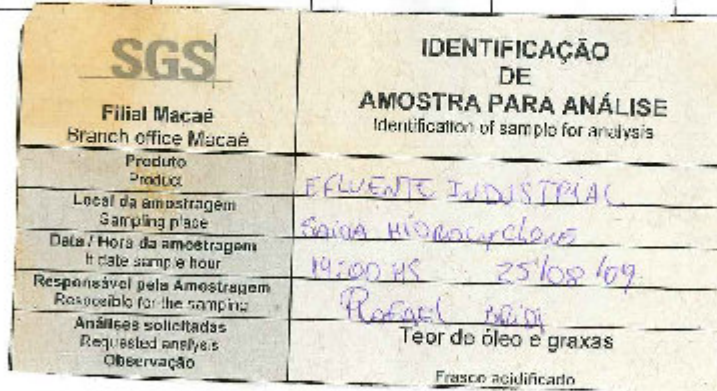 SGS
Filial Macaé
Branch office Macaé
IDENTIFICAÇÃO
DE
AMOSTRA PARA ANÁLISE
Identification of sample for analysis
Produto
Product
EFLUENTE INDUSTRIAL
Local da amostragem
Sampling place
SAIDA HIDROCYCLONE
Data / Hora da amostragem
date sample hour
14:00 HS 25/08/09
Responsável pela Amostragem
Resposible for the samping
Rafael
Análises solicitadas
Requested analysis
Teor de óleo e graxas
Observação
Frasco acidificado